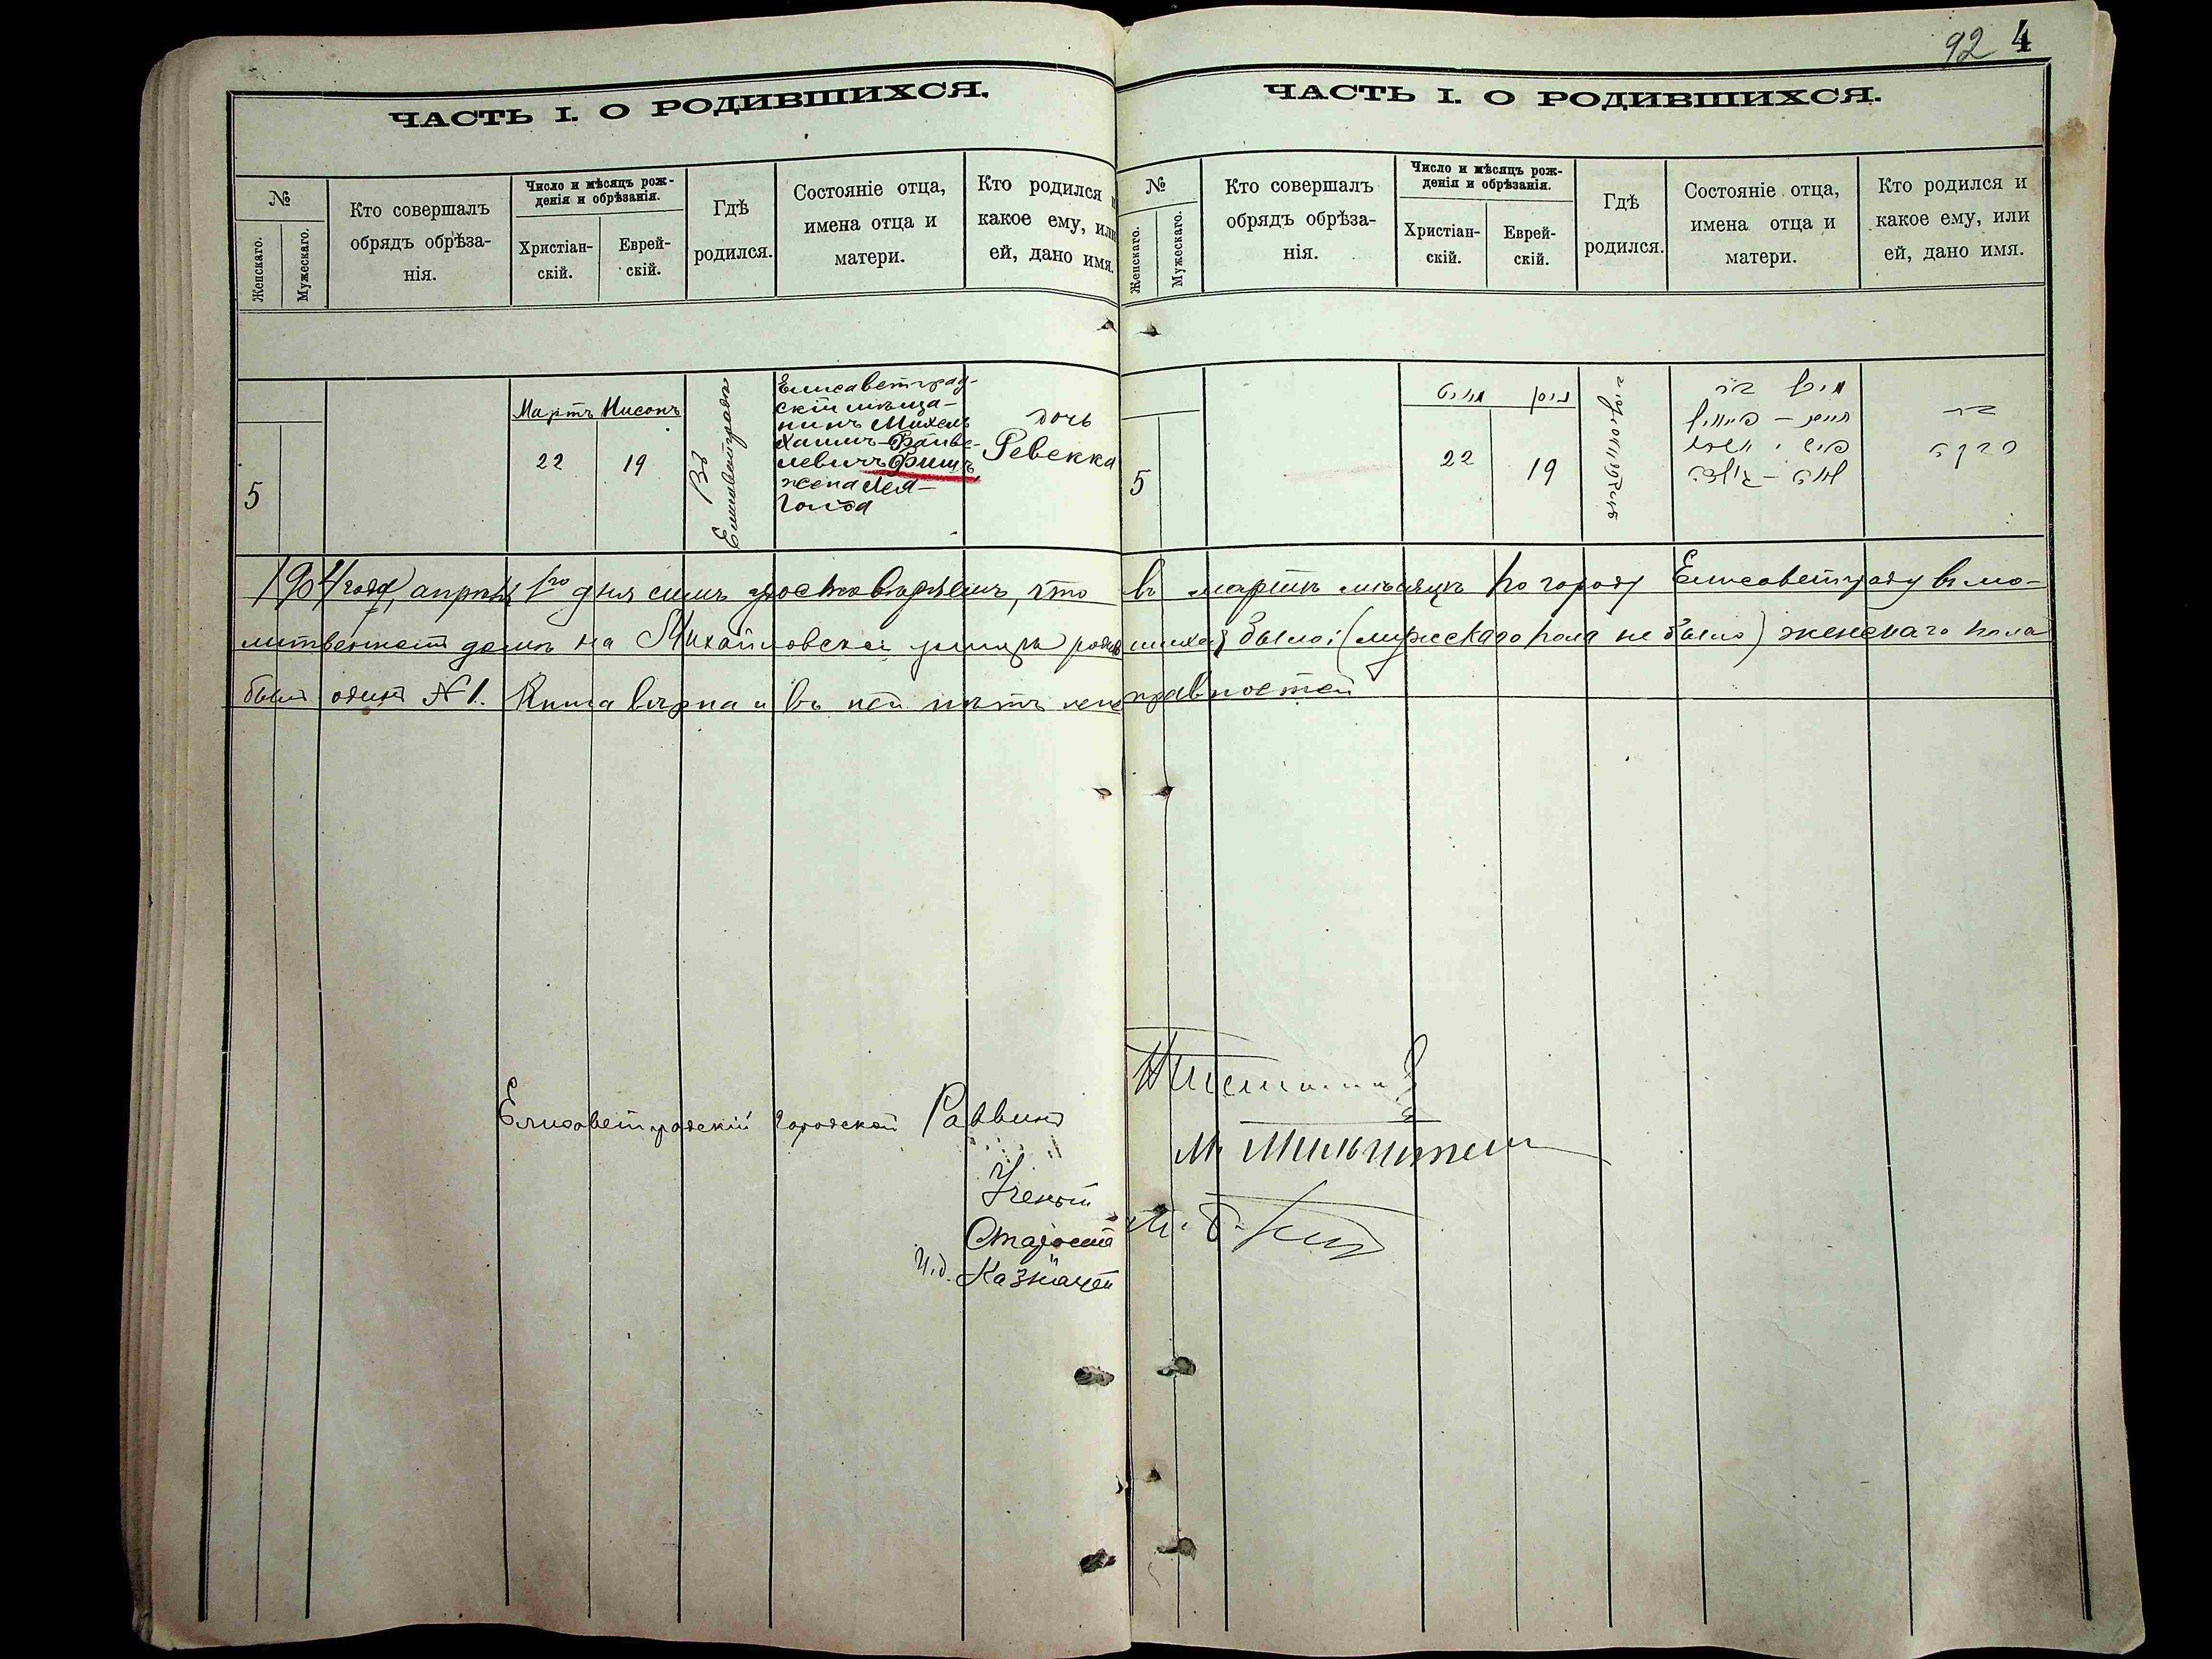 92 4
ЧАСТЬ I. О РОДИВШИХСЯ.
№
Женскаго.
Мужескаго.
Кто совершалъ
обрядъ обрѣза-
нія.
Число и мѣсяцъ рож-
денія и обрѣзанія.
Христіан-
скій.
Еврей-
скій.
Гдѣ
родился.
Состояніе отца,
имена отца и
матери.
Кто родился и
какое ему, или
ей, дано имя.
5
Мартъ Нисонъ
22 19
Въ
Елисаветградѣ
Елисаветград-
скій мѣща-
нинъ Михель
Хаимъ-Файве-
левичъ Фишъ
жена Лея-
Голда
дочь
Ревекка
ЧАСТЬ I. О РОДИВШИХСЯ.
№
Женскаго.
Мужескаго.
Кто совершалъ
обрядъ обрѣза-
нія.
Число и мѣсяцъ рож-
денія и обрѣзанія.
Христіан-
скій.
Еврей-
скій.
Гдѣ
родился.
Состояніе отца,
имена отца и
матери.
Кто родился и
какое ему, или
ей, дано имя.
5
ניסן
22 19
1904 года, апрѣля 1го дня симъ удостовѣряемъ, что въ мартѣ мѣсяцѣ по городу Елисаветграду въ мо-
литвенномъ домѣ на Михайловской улицѣ родившихся было: (мужескаго пола не было) женскаго пола
былъ одинъ № 1. Книга вѣрна и въ ней нѣтъ неисправностей
Елисаветградскій Городской Раввинъ
Ученый
М.
Староста
и
И.д. Казначей